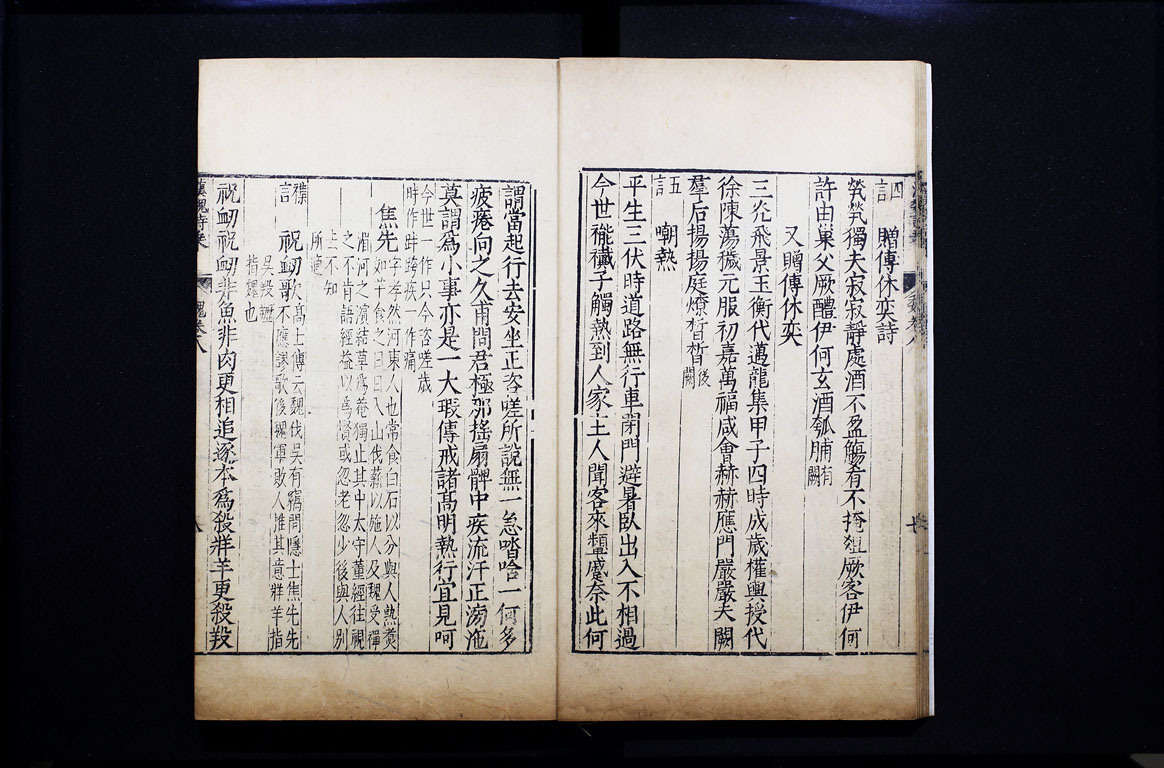 四言 贈傅休奕詩
煢煢獨夫寂寂靜處酒不盈觴肴不掩俎厥客伊何
許由巢父厥醴伊何玄酒瓠脯有闕
又贈傅休奕
三光飛景玉衡代邁龍集甲子四時成歲權輿授代
徐陳蕩穢元服初嘉萬福咸會赫赫應門嚴嚴天闕
羣后揚揚庭燎晳晳後闕
五言 嘲熱
平生三伏時道路無行車閉門避暑臥出入不相過
今世褦襶子觸熱到人家主人聞客來顰蹙奈此何
謂當起行去安坐正咨嗟所說無一急㗳唅一何多
疲瘼向之久甫問君極那搖扇髀中疾流汗正滂沲
莫謂為小事亦是一大瑕傳戒諸髙明熱行宜見呵
今世一作只今咨嗟歲
時作跨疾一作痛
焦先
字孝然河東人也常食白石以分與人熱煑
如芋食之日日入山伐薪以施人及魏受禪
㞐河之濵結草為菴獨止其中太守董經往視
之不肯語經益以為賢或忽老忽少後與人別
去不知
所適
襍言 祝衂歌
髙士傳云魏伐吳有竊問隱士焦先先
不應謬歌後魏軍敗人推其意牂羊指
吳羖䍽
指魏也
祝衂祝衂非魚非肉更相追逐本為殺牂羊更殺羖
魏卷八
八